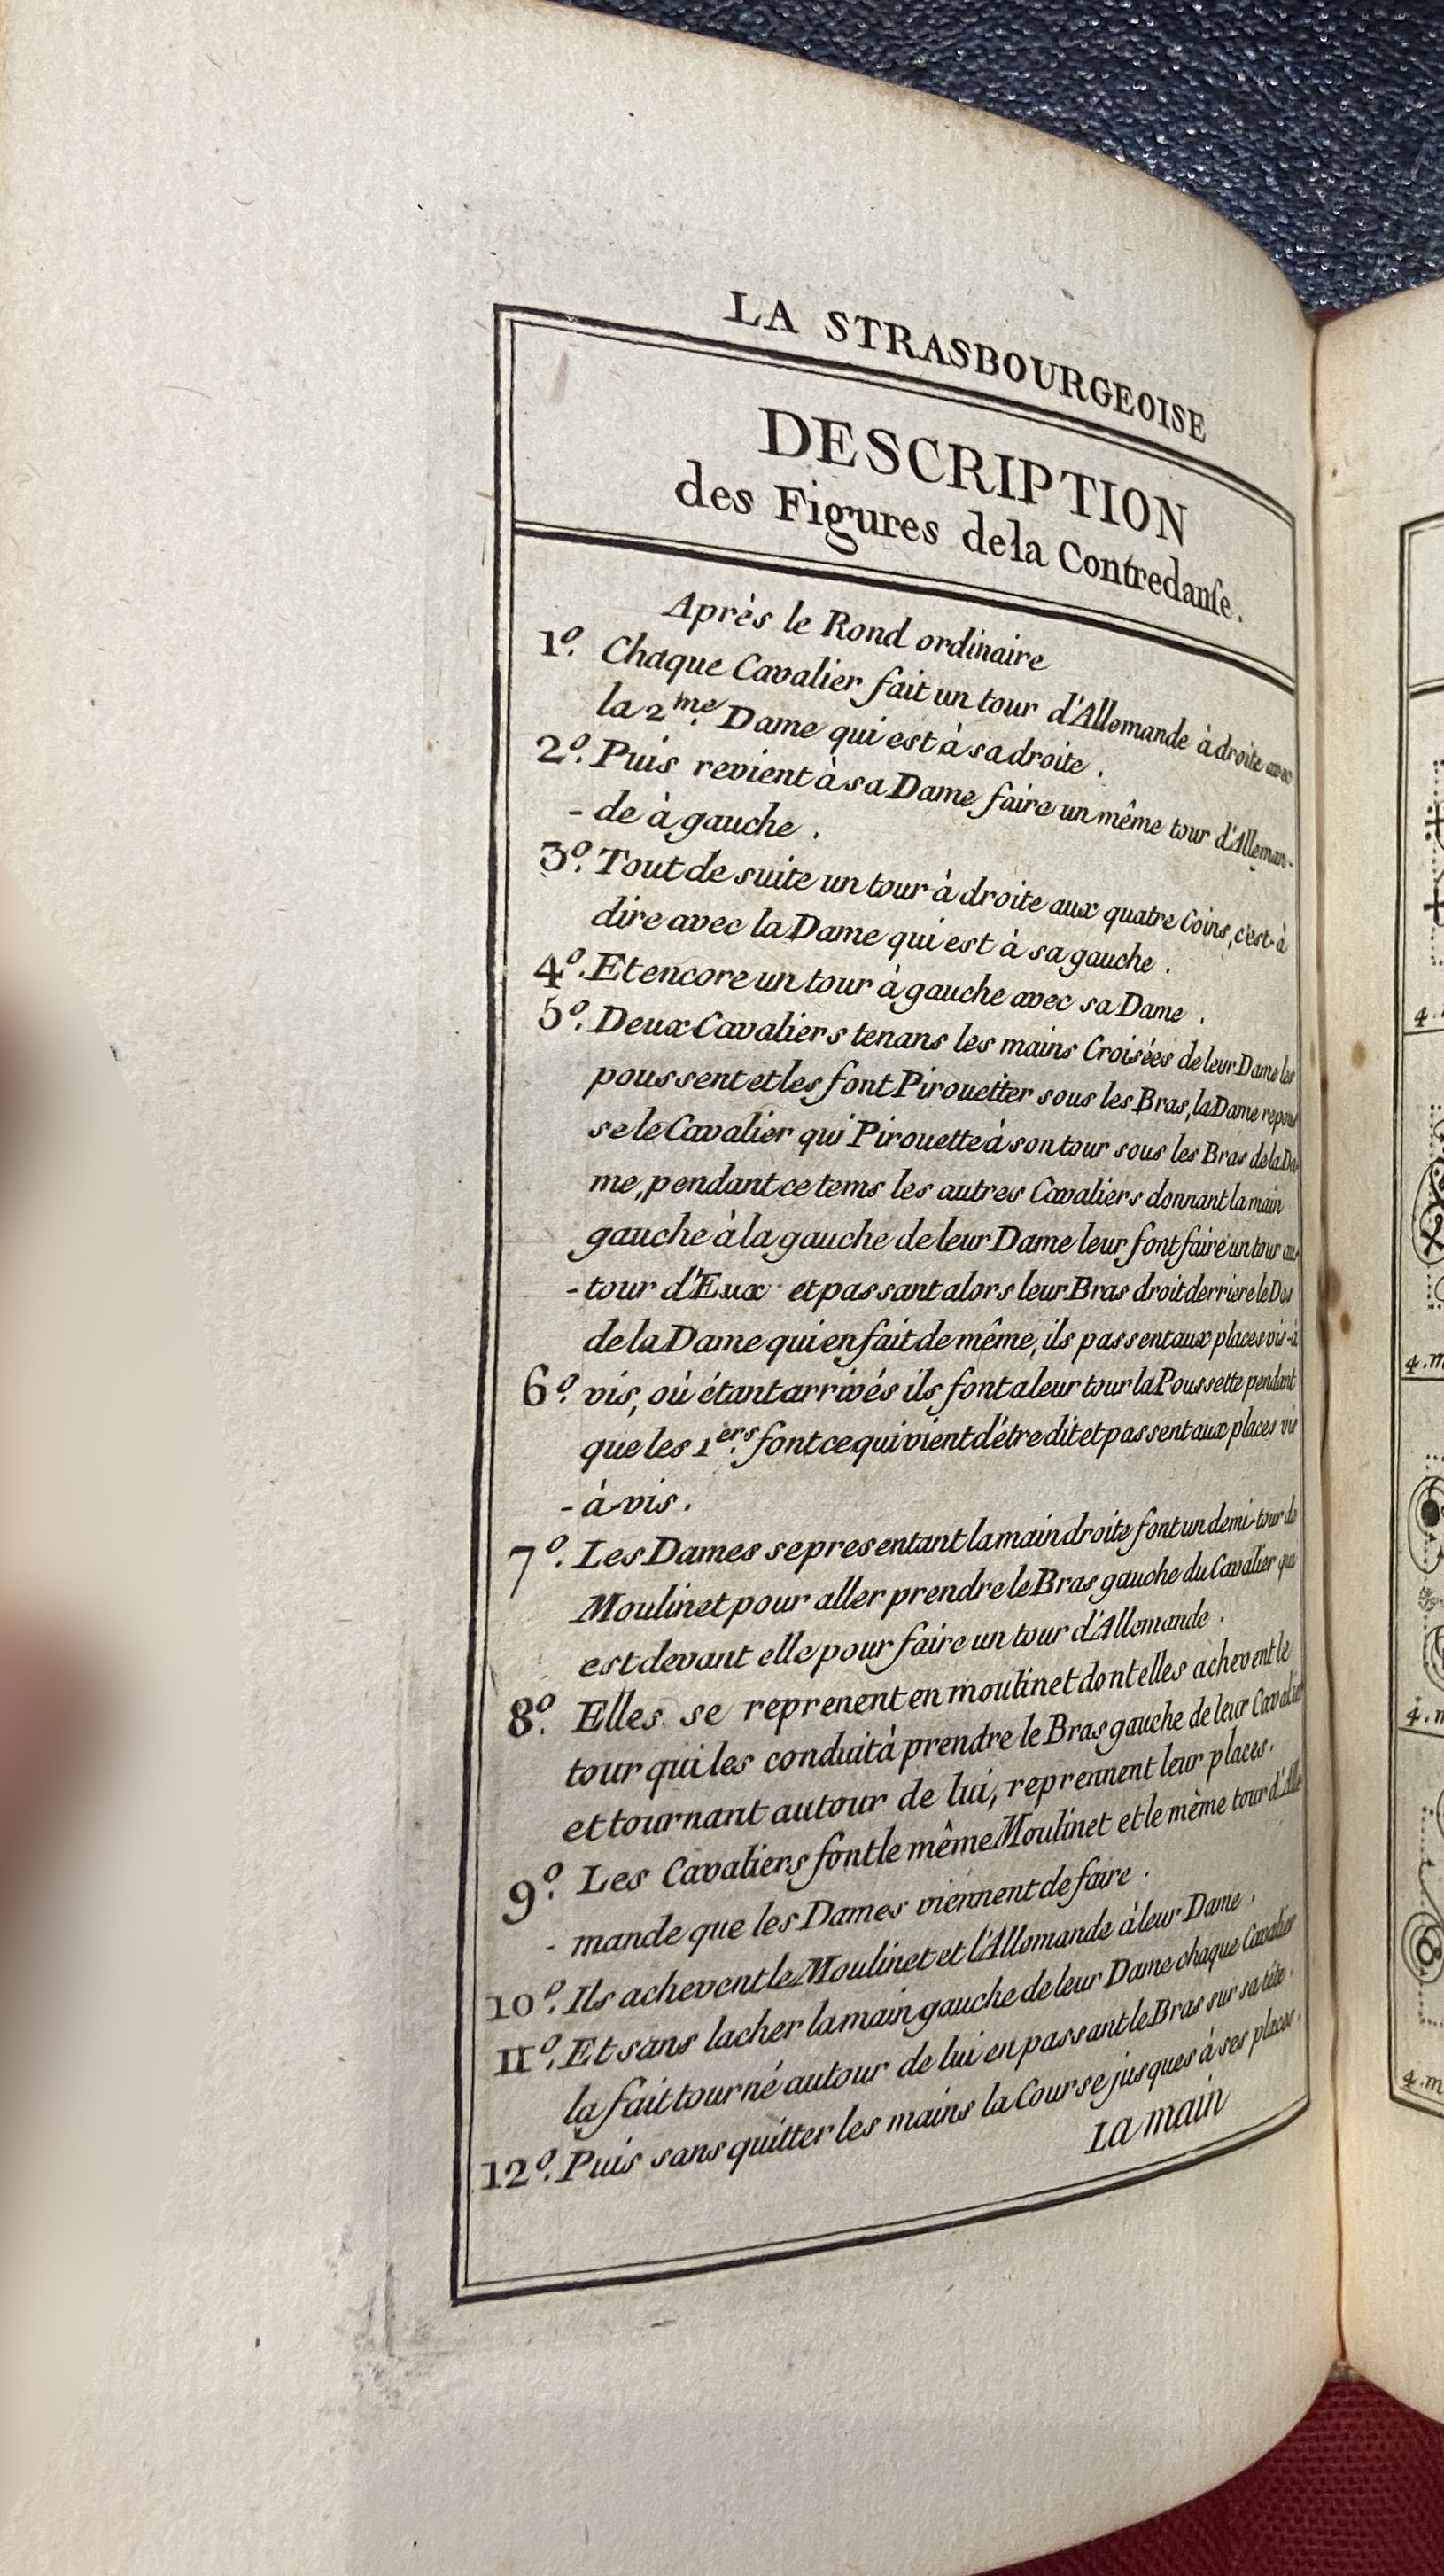 LA STRASBOURGEOISE
DESCRIPTION
des Figures de la Contredanſe.
Après le Rond ordinaire
1º. Chaque Cavalier fait un tour d'Allemande à droite avec
la 2me. Dame qui est à sa droite.
2º. Puis revient à sa Dame faire un même tour d'Alleman-
- de à gauche.
3º. Tout de suite un tour à droite aux quatre Coins, c'est-à
dire avec la Dame qui est à sa gauche.
4º. Et encore un tour à gauche avec sa Dame.
5º. Deux Cavaliers tenans les mains Croisées de leur Dame les
poussent et les font Pirouetter sous les Bras, la Dame repous
se le Cavalier qui Pirouette à son tour sous les Bras de la Da-
me, pendant ce tems les autres Cavaliers donnant la main
gauche à la gauche de leur Dame leur font faire un tour au-
- tour d'Eux et passant alors leur Bras droit derriere le Dos
de la Dame qui en fait de même, ils passent aux places vis-à
6º. vis, où étant arrivés ils font a leur tour la Poussette pendant
que les 1ers. font ce qui vient d'étre dit et passent aux places vis
- à-vis.
7º. Les Dames se presentant la main droite font un demi-tour de
Moulinet pour aller prendre le Bras gauche du Cavalier qui
est devant elle pour faire un tour d'Allemande.
8º. Elles se reprenent en moulinet dont elles achevent le
tour qui les conduit à prendre le Bras gauche de leur Cavalier
et tournant autour de lui, reprennent leur places.
9º. Les Cavaliers font le même Moulinet et le mème tour d'Alle
- mande que les Dames viennent de faire.
10º. Ils achevent le Moulinet et l'Allemande à leur Dame.
11º. Et sans lacher la main gauche de leur Dame chaque Cavalier
la fait tourné autour de lui en passant le Bras sur sa tête.
12º. Puis sans quitter les mains la Course jusques à ses places.
La main
4.
4.m
4.m
4.m